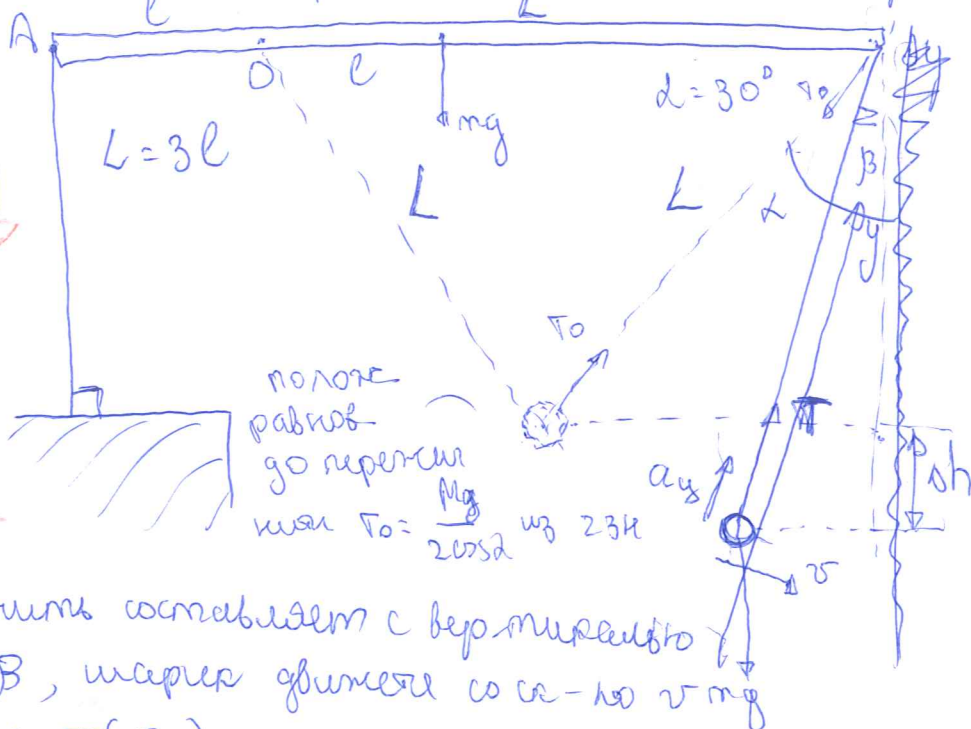 l L
A
O l
mg
α = 30°
T₀
L = 3l
β
L
L
α
y
T₀
полож
равнов
до пережи
T
aц
Δh
T₀ = Mg/2cosα из 2ЗН
v
нить составляет с вертикалью
β, шарик движется со ск-ю v mg